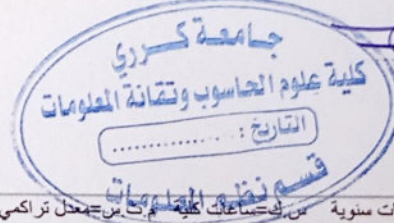 جامعة كرري
كلية علوم الحاسوب وتقانة المعلومات
التاريخ : ....................
قسم نظم المعلومات
ات سنوية س.ك=ساعات كلية م.ت.س=معدل تراكمي